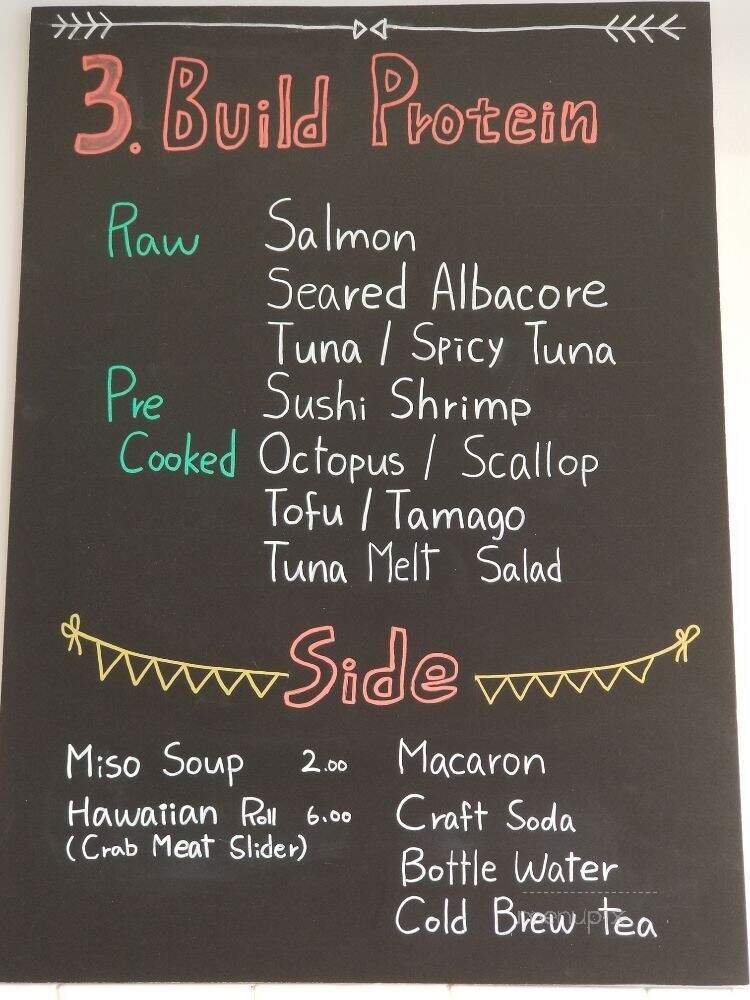 3. Build Protein
Raw Salmon
Seared Albacore
Tuna / Spicy Tuna
Pre Sushi Shrimp
Cooked Octopus / Scallop
Tofu / Tamago
Tuna Melt Salad
Side
Miso Soup 2.00 Macaron
Hawaiian Roll 6.00 Craft Soda
(Crab Meat Slider)
Bottle Water
Cold Brew tea
menupix